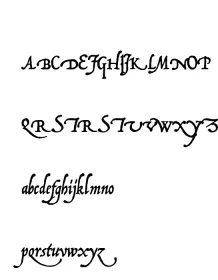 ABCDEFGHIJKLMNOP
QRSTRSTUVWXYZ
abcdefghijklmno
pqrstuvwxyz